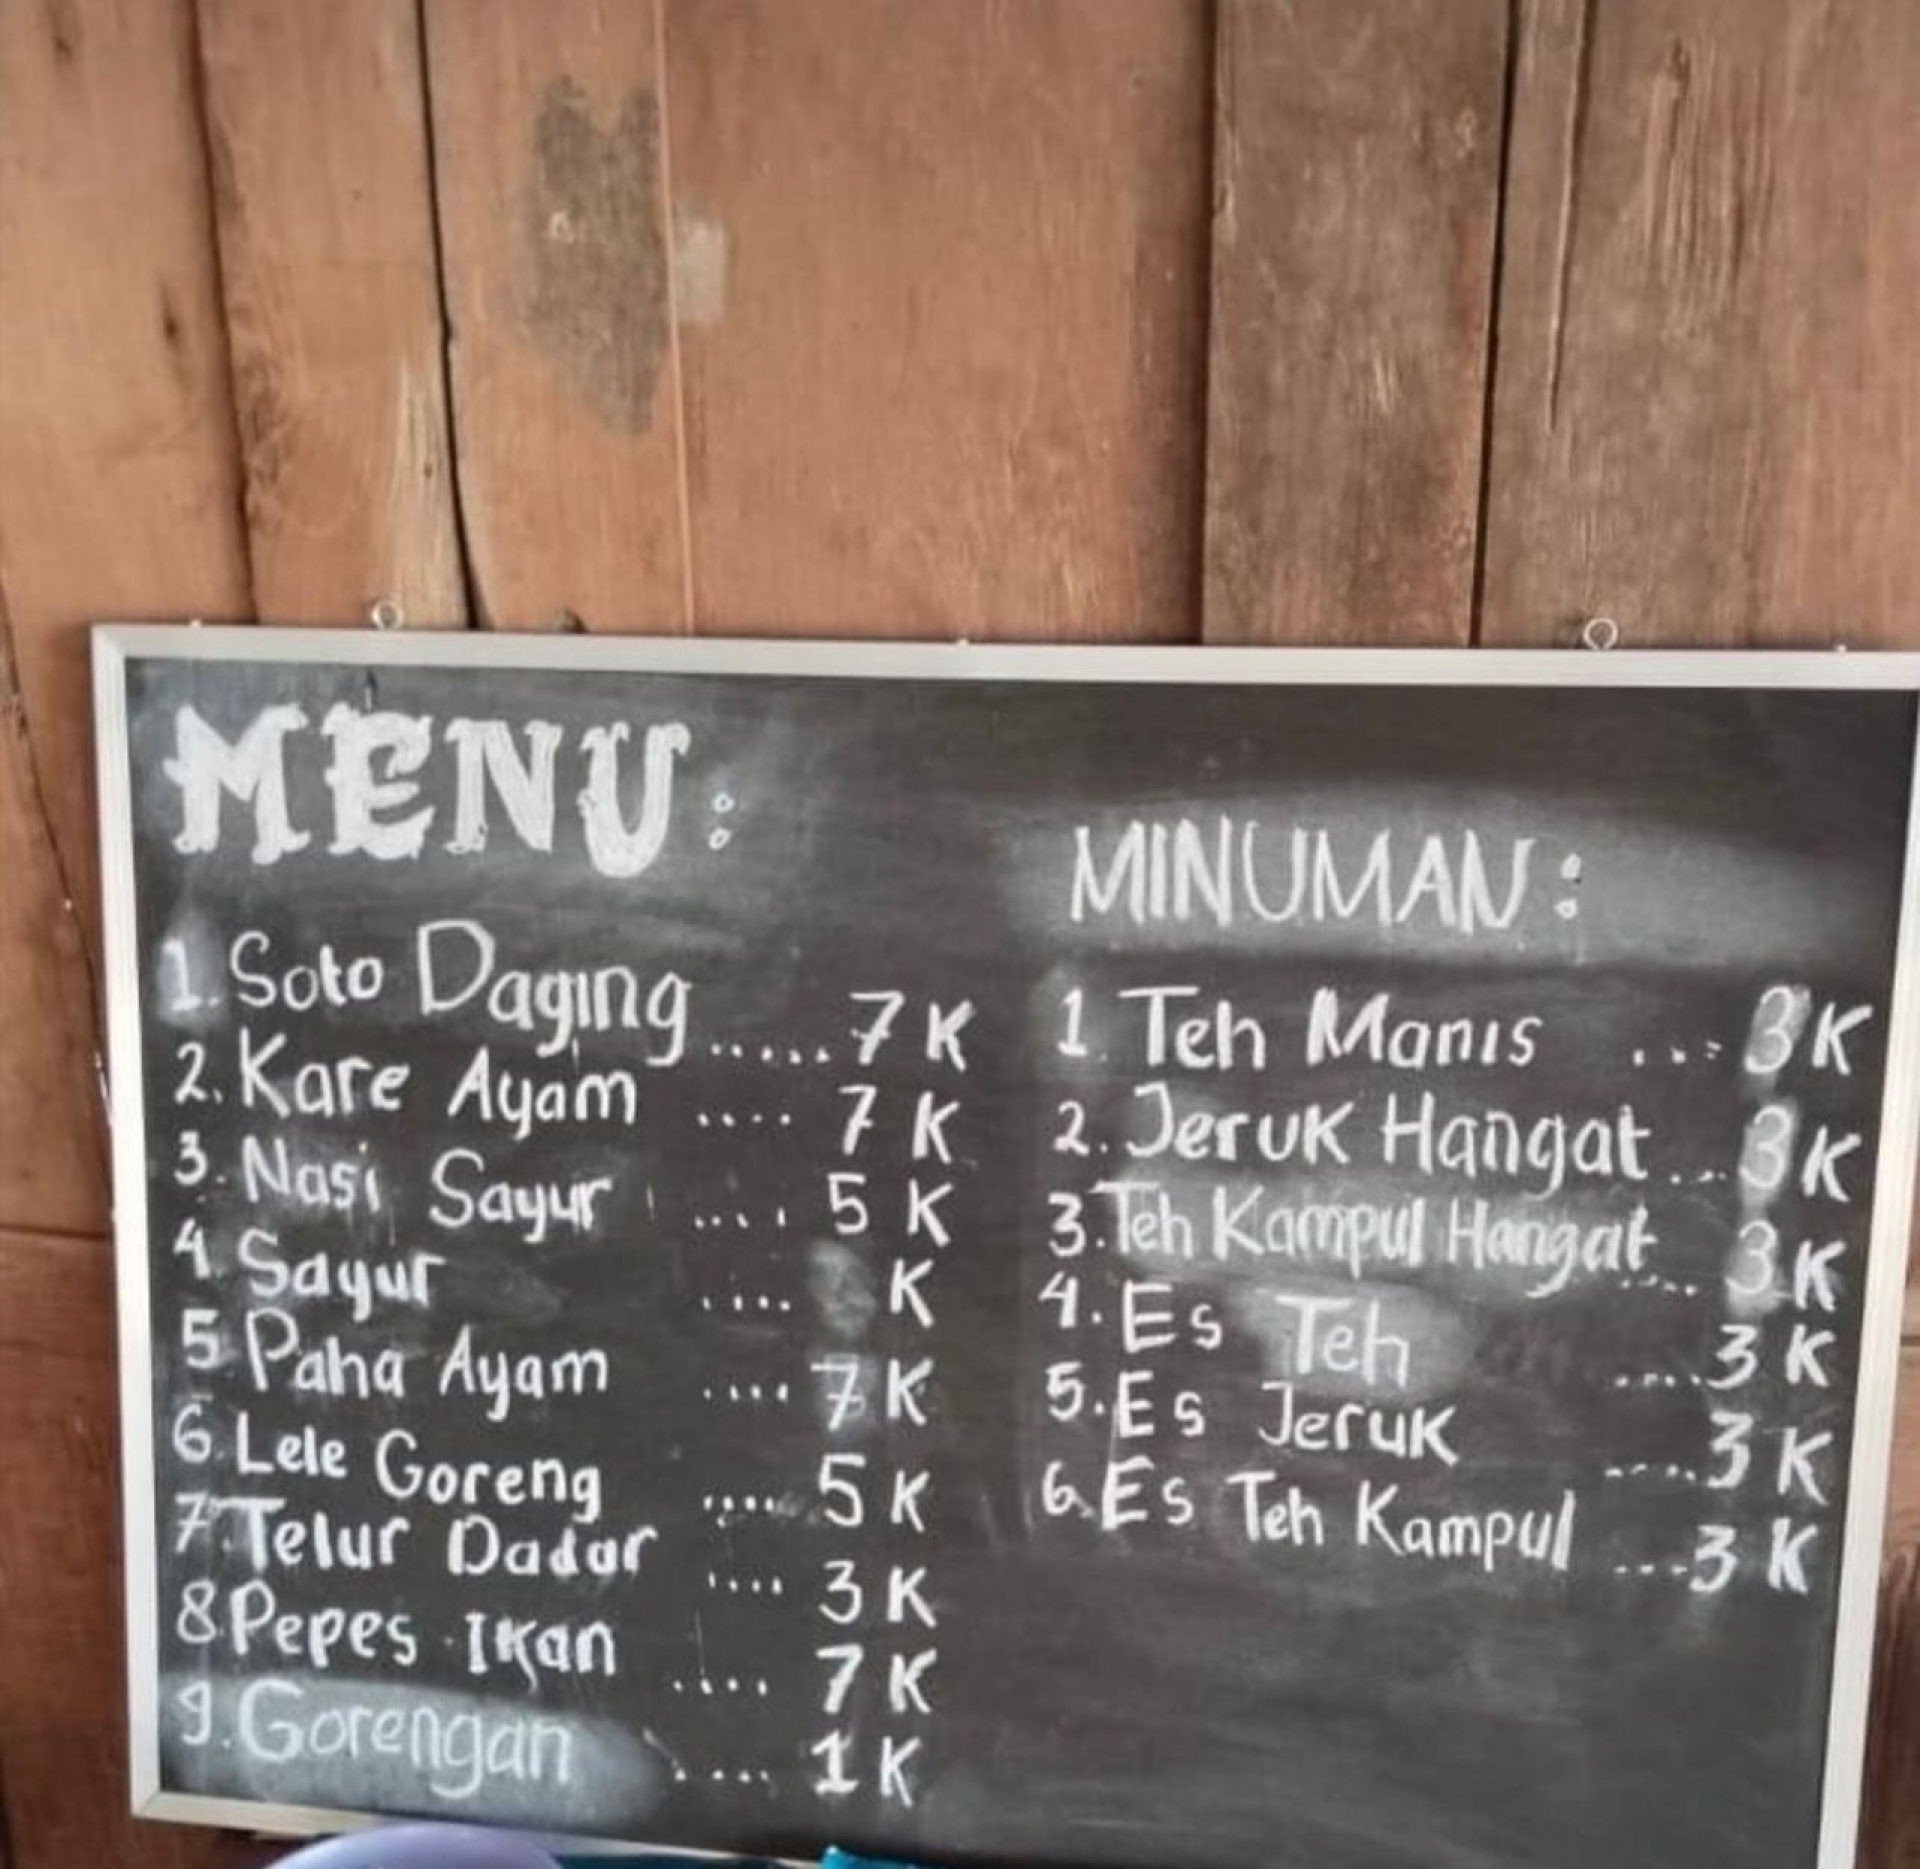 MENU:
1. Soto Daging ..... 7 K
2. Kare Ayam .... 7 K
3. Nasi Sayur .... 5 K
4. Sayur .... K
5. Paha Ayam .... 7 K
6. Lele Goreng .... 5 K
7. Telur Dadar .... 3 K
8. Pepes Ikan .... 7 K
9. Gorengan .... 1 K
MINUMAN:
1. Teh Manis ... 3 K
2. Jeruk Hangat ... 3 K
3. Teh Kampul Hangat .... 3 K
4. Es Teh .... 3 K
5. Es Jeruk .... 3 K
6. Es Teh Kampul ... 3 K